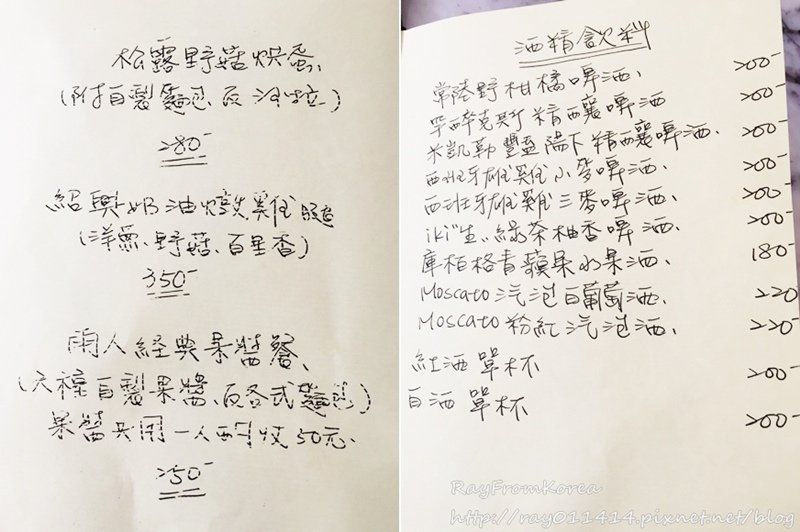 松露野菇烘蛋、
(附自製麵包及沙拉)
280-
紹興奶油燉雞腿
(洋蔥、野菇、百里香)
350-
兩人經典果醬餐、
(六種自製果醬、及各式麵包)
果醬共用一人酌收50元.
250-
酒精飲料
常陸野柑橘啤酒、 200-
罕醉克斯精釀啤酒 200-
米凱勒豐盈陽下精釀啤酒、 200-
西班牙雄雞小麥啤酒、 200-
西班牙雄雞三麥啤酒、 200-
iki"生"綠茶柚香啤酒、 200-
庫柏格青蘋果水果酒、 180-
Moscato 汽泡白葡萄酒、 220
Moscato 粉紅汽泡酒、 220-
紅酒 單杯 200-
白酒 單杯 200-
RayFromKorea
http://ray011414.pixnet.net/blog